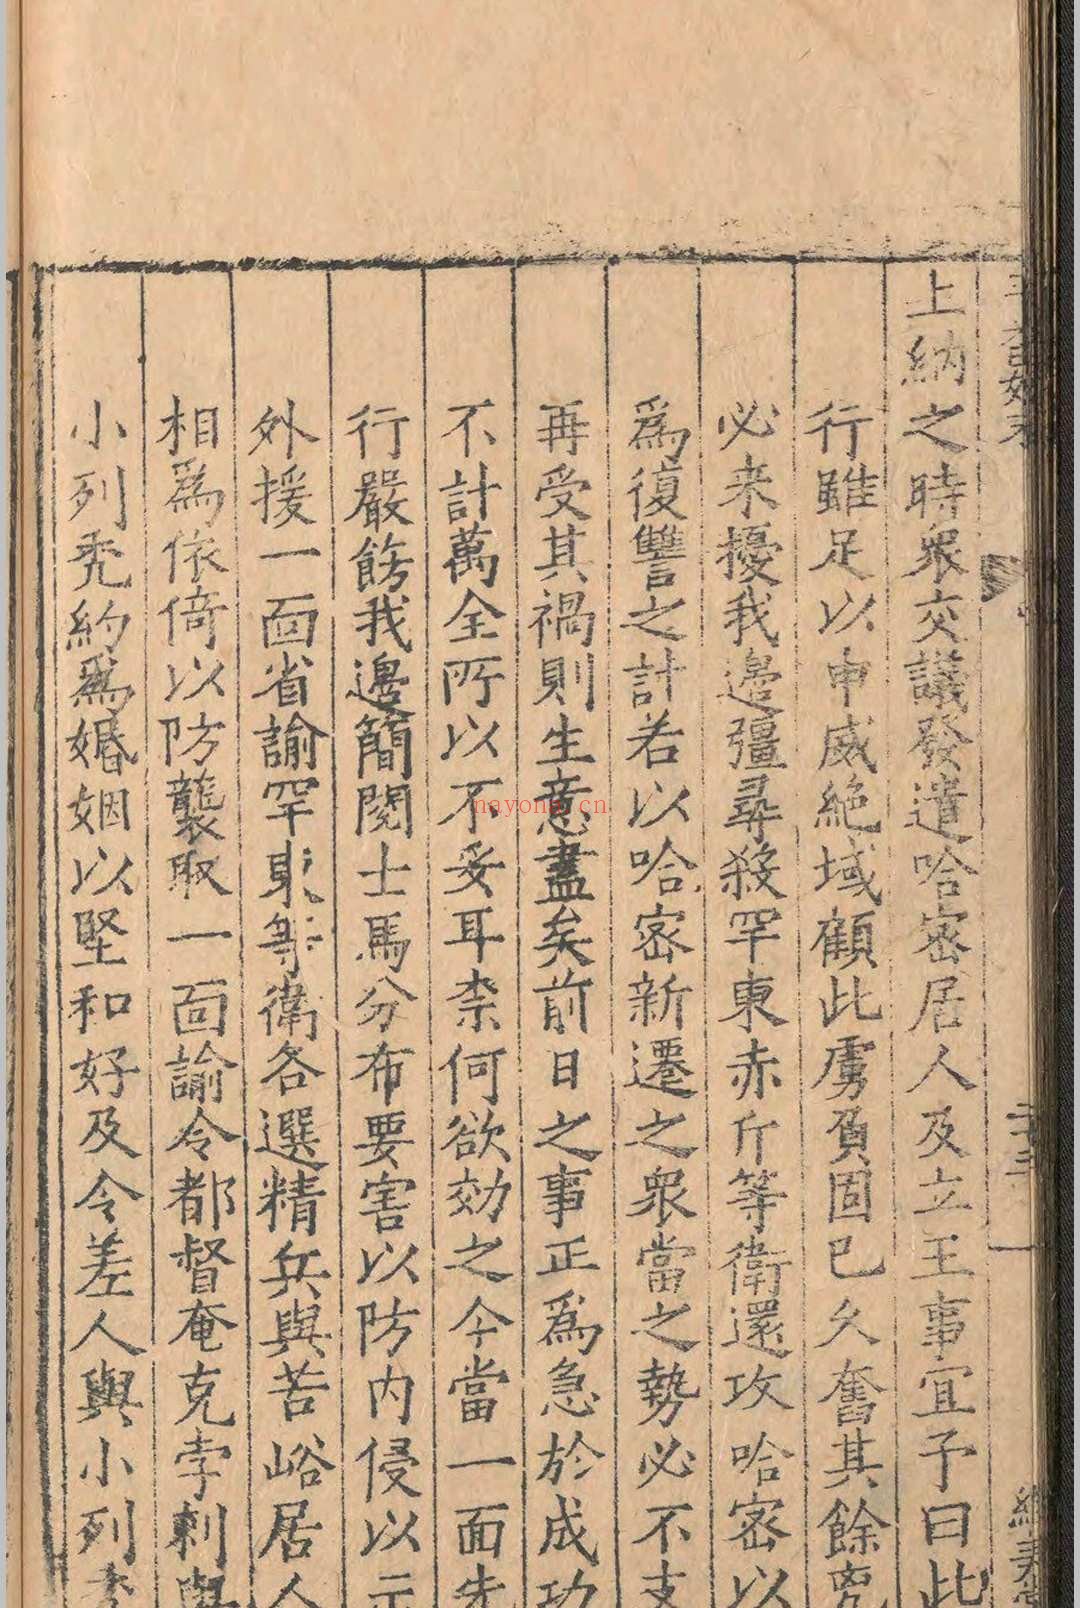 上納之時衆交議發遣哈密居人及立王事宜予曰此
行雖足以申威絕域顧此虜負固已久奮其餘
必来擾我邊彊尋殺罕東赤斤等衛還攻哈密以
為復讐之計若以哈密新遷之衆當之勢必不支
再受其禍則生意盡矣前日之事正為急於成功
不計萬全所以不妥耳柰何欲効之今當一面先
行嚴餝我邊簡閱士馬分布要害以防内侵以示
外援一靣省諭罕東等衛各選精兵與苦峪居人
相為依倚以防襲取一靣諭令都督奄克孛剌與
小列禿約為婚姻以堅和好及令差人與小列禿
二十三
nayong.cn